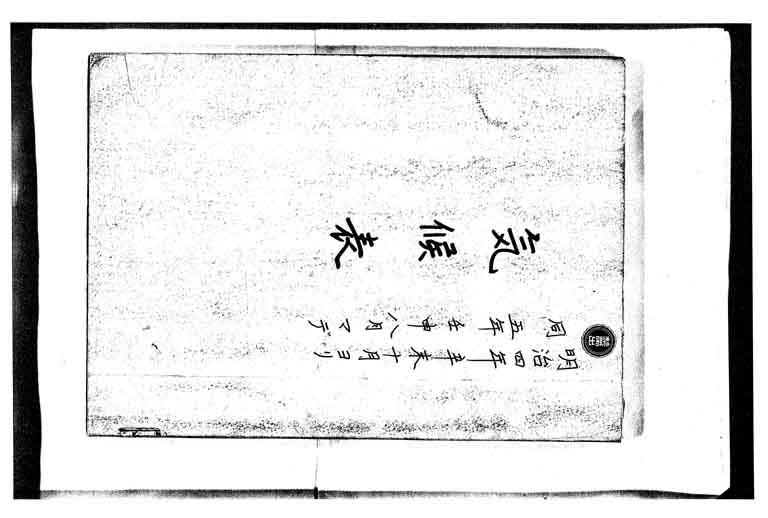 明治四年辛未十月ヨリ
同五年壬申八月マデ
気候表